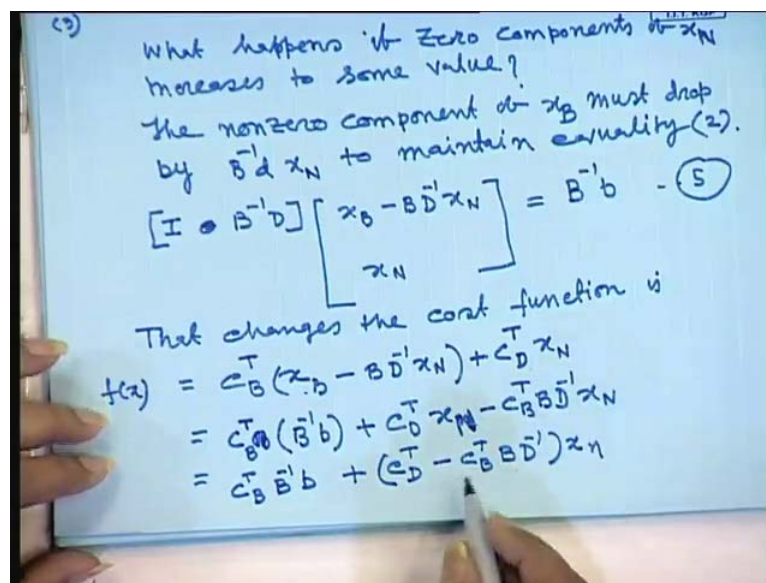 (3)
What happens if zero components of x_N
increases to some value?
The nonzero component of x_B must drop
by B^{-1}d x_N to maintain equality (2).
[I B^{-1}D] [ x_B - B D^{-1} x_N ; x_N ] = B^{-1}b - (5)
That changes the cost function is
f(x) = C_B^T (x_B - B D^{-1} x_N) + C_D^T x_N
= C_B^T (B^{-1}b) + C_D^T x_N - C_B^T B D^{-1} x_N
= C_B^T B^{-1}b + (C_D^T - C_B^T B D^{-1}) x_n